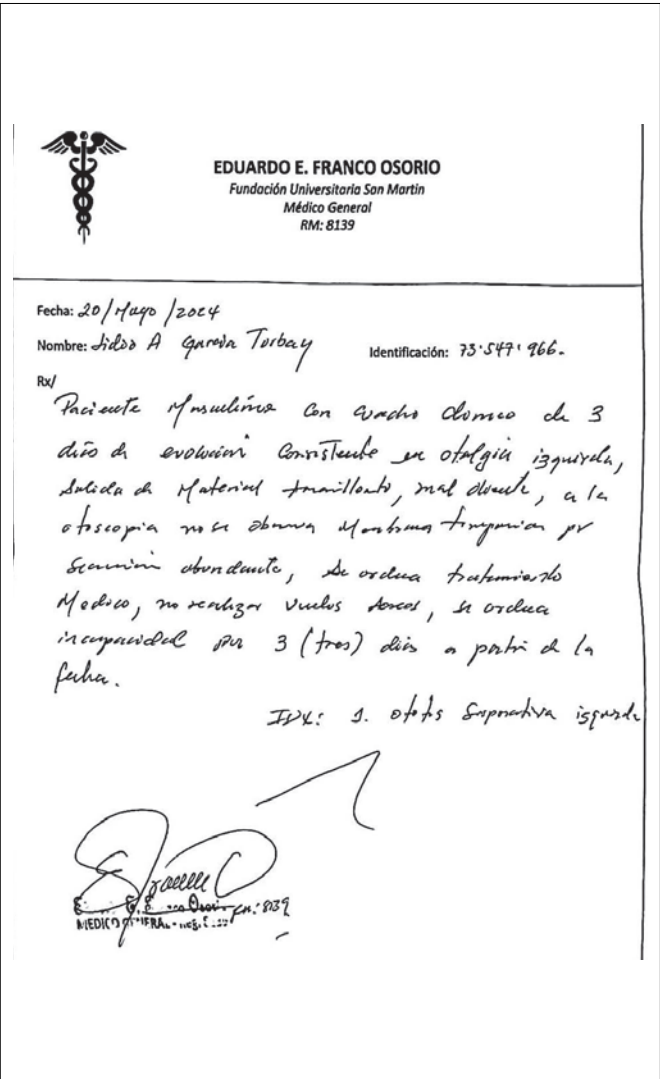 EDUARDO E. FRANCO OSORIO
Fundación Universitaria San Martin
Médico General
RM: 8139
Fecha: 20/Mayo/2024
Nombre: A Garcia Turbay Identificación: 73'547'966.
Rx/
Paciente Masculino con cuadro clinico de 3
dias de evolución consistente en otalgia izquierda,
salida de Material amarillento, mal oliente, a la
otoscopia no se observa Membrana timpanica por
secrecion abundante, se ordena tratamiento
Medico, no realizar vuelos aereos, se ordena
incapacidad por 3 (tres) dias a partir de la
fecha.
IDX: 1. otitis supurativa izquierda
RM: 8139
MEDICO GENERAL